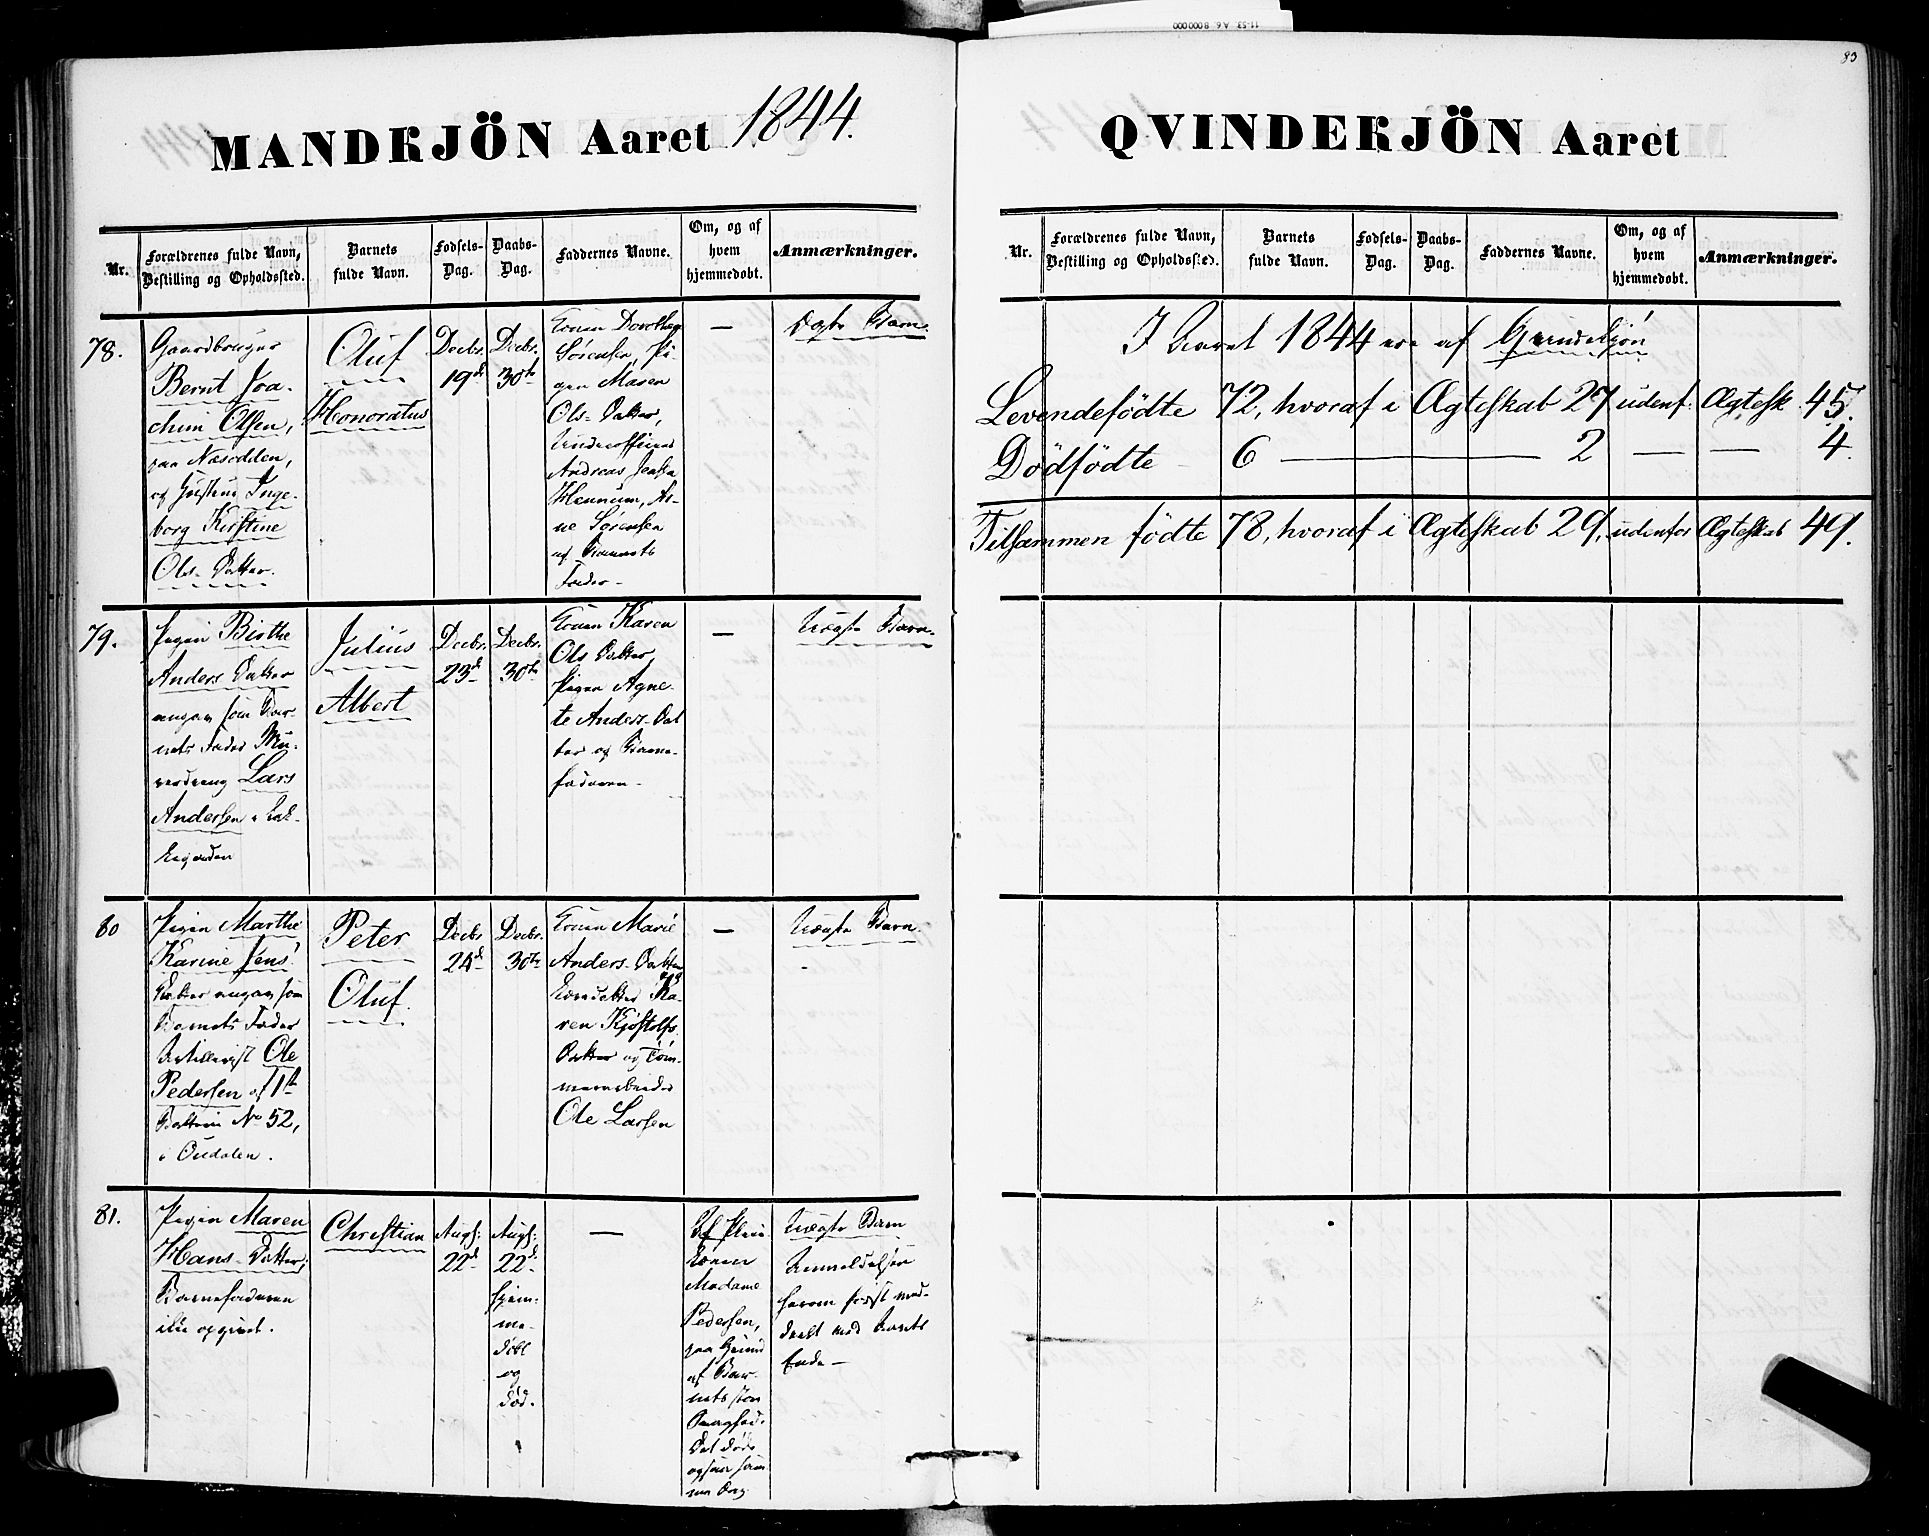 11-53. A6. 8000000
83
MANDKJÖN Aaret 1844.
Nr.
Forældrenes fulde Navn,
Bestilling og Opholdssted.
Barnets
fulde Navn.
Fødsels-
Dag.
Daabs-
Dag.
Faddernes Navne.
Om, og af
hvem
hjemmedøbt.
Anmærkninger.
78.
Gaardbruger
Bernt Joa-
chim Olsen,
paa Næsodden,
og Hustrue Inge-
borg Kirstine
Ols-Datter.
Oluf
Honoratus
Decbr.
19d
Decbr.
30te
Konen Dorthea
Sørensen, Pi-
gen Maren
Ols-Datter,
Underofficeer
Andreas Jensen
Hennum, Ar-
ne Sørensen
og Barnets
Fader-
—
Ægte Barn.
79.
Pigen Birthe
Anders Datter
angav som Bar-
nets Fader Mu-
rerdreng Lars
Andersen i
Julius
Albert
Decbr.
23d
Decbr.
30te
Konen Karen
Ols Datter
Pigen Agne-
te Anders-Dat
ter og Barne-
faderen-
—
Uægte Barn.
80
Pigen Marthe
Karine Jens'
Datter angav som
Barnets Fader
Artillerist Ole
Pedersen af 1ste
Batterie No 52,
i Oudalen.
Peter
Oluf.
Decbr
24d
Decbr.
30te
Konen Marie
Anders-Datter
Ka-
ren Kjøstolfs
Datter og Tøm-
merarbeider
Ole Larsen
—
Uægte Barn
81.
Pigen Maren
Hans-Datter;
Barnefaderen
ikke opgivet.
Christian
Augs:
22d
Augs:
22d
hjem-
me-
døbt
og
død.
—
Af Pleie-
konen
Madame
Pedersen,
paa Grund
af Bar-
nets stor
Svaghed.
Det døde
ogsaa sam-
me Dag.
Uægte Barn
Anmeldelsen
herom først med-
deelt ved Aarets
Ende-
QVINDEKJÖN Aaret
Nr.
Forældrenes fulde Navn,
Bestilling og Opholdssted.
Barnets
fulde Navn.
Fødsels-
Dag.
Daabs-
Dag.
Faddernes Navne.
Om, og af
hvem
hjemmedøbt.
Anmærkninger.
I Aaret 1844 ere af Qvindekjön
Levendefödte 72, hvoraf i Ægteskab 27 udenf. Ægtesk. 45.
Dödfödte 6 — 2 — — 4.
Tilsammen födte 78, hvoraf i Ægteskab 29, udenfor Ægteskab 49.